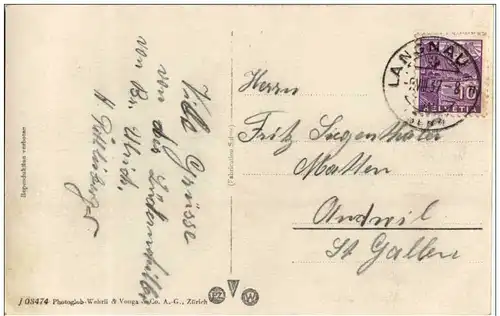 Viele Grüsse
von der
von Br. Ulrich.
LANGNAU
BERN
10
HELVETIA
Herrn
Fritz Siegenthaler
Matten
Andwil
St Gallen
Reproduktion verboten
(Fabrication Suisse)
J 03474 - Photoglob-Wehrli & Vouga & Co. A.-G., Zürich
PZ
W